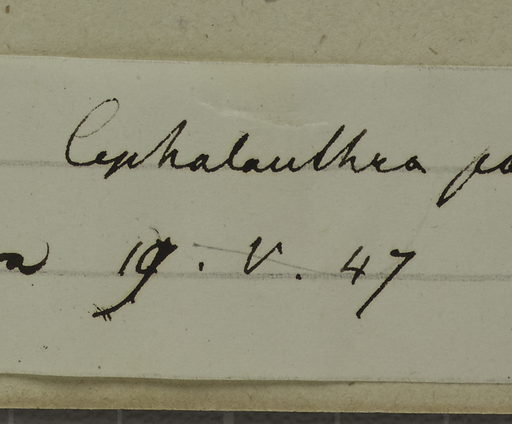 Cephalanthra
19. V. 47